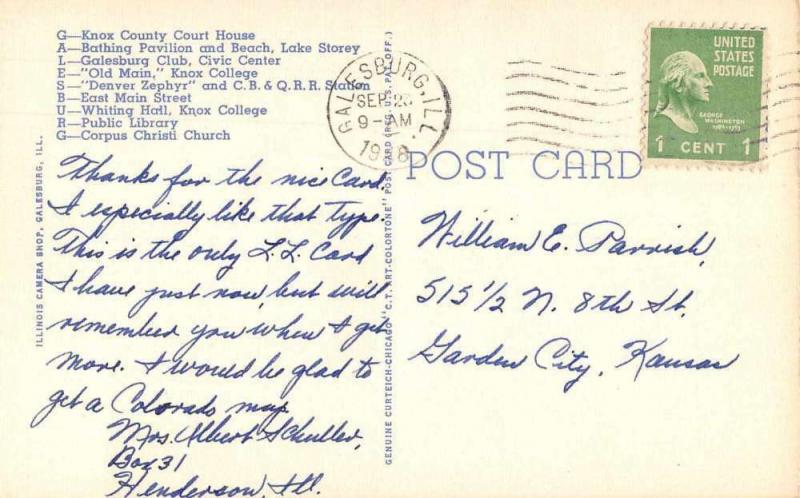 G—Knox County Court House
A—Bathing Pavilion and Beach, Lake Storey
L—Galesburg Club, Civic Center
E—"Old Main," Knox College
S—"Denver Zephyr" and C. B. & Q. R. R. Station
B—East Main Street
U—Whiting Hall, Knox College
R—Public Library
G—Corpus Christi Church
ILLINOIS CAMERA SHOP, GALESBURG, ILL.
Thanks for the nice Card.
I especially like that type.
This is the only L.L. Card
I have just now, but will
remember you when I get
more. I would be glad to
get a Colorado map
Mrs. Albert Schuller,
Box 31
Henderson, Ill.
GENUINE CURTEICH-CHICAGO "C.T. ART-COLORTONE" POST CARD (REG. U.S. PAT. OFF.)
GALESBURG, ILL.
SEP
9-AM
UNITED
STATES
POSTAGE
GEORGE
WASHINGTON
1 CENT 1
POST CARD
William E. Parrish,
515 1/2 N. 8th St.
Garden City, Kansas